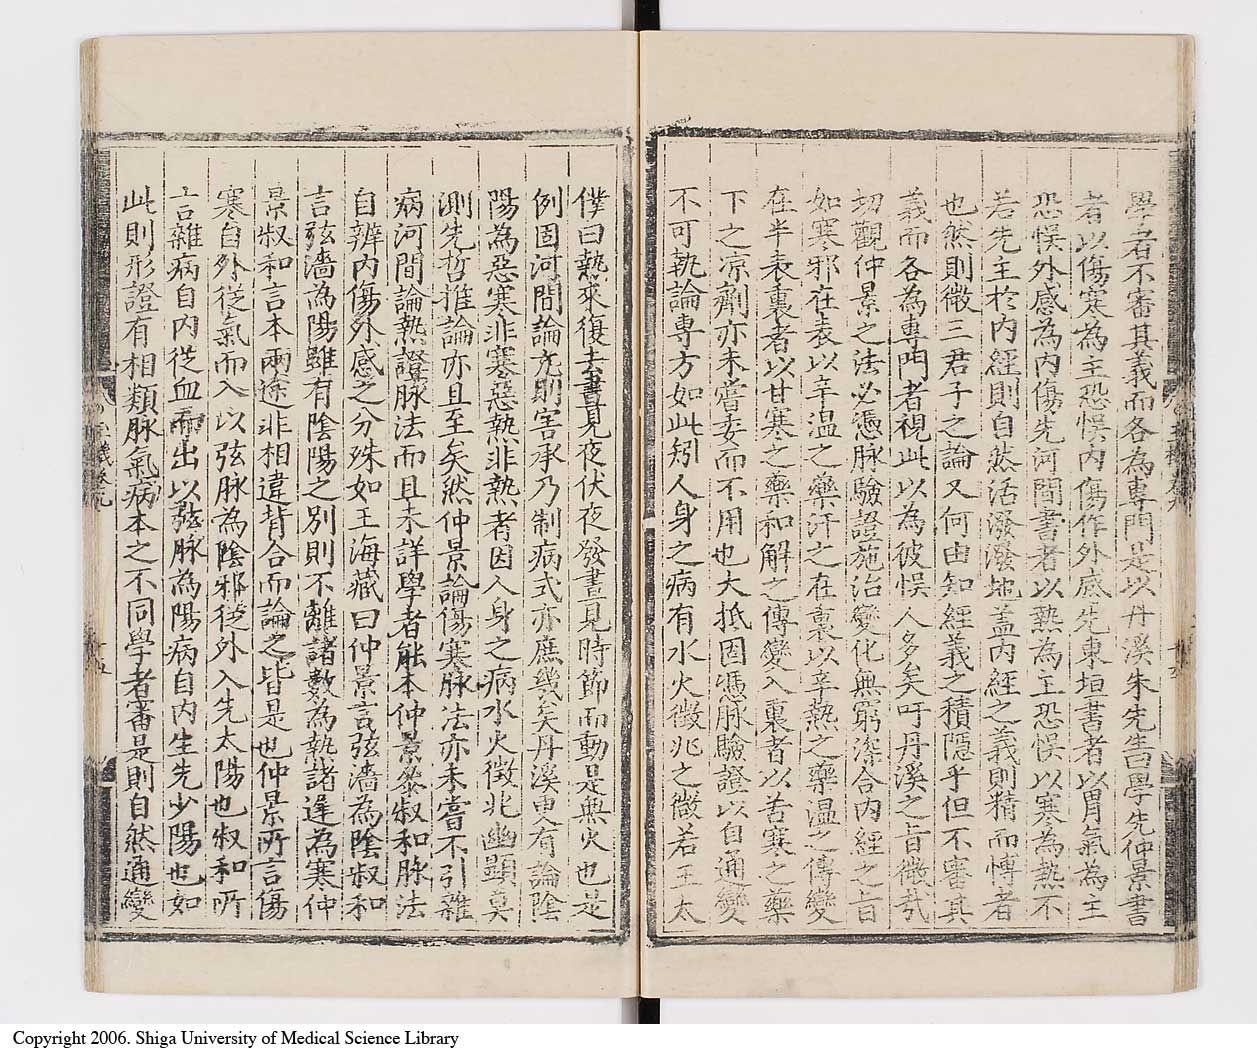 學者不審其義而各為專門是以丹溪朱先生曰學先仲景書
者以傷寒為主恐悞內傷作外感先東垣書者以胃氣為主
恐悞外感為內傷先河間書者以熱為主恐悞以寒為熱不
若先主於內經則自然活潑潑地盖內經之義則精而愽者
也然則微三君子之論又何由知經義之積隱乎但不審其
義而各為專門者視此以為彼悞人多矣吁丹溪之旨微哉
切觀仲景之法必憑脉驗證施治變化無窮深合內經之旨
如寒邪在表以辛温之藥汗之在裏以辛熱之藥温之傳變
在半表裏者以甘寒之藥和解之傳變入裏者以苦寒之藥
下之凉劑亦未嘗委而不用也大抵固憑脉驗證以自通變
不可執論專方如此矧人身之病有水火徴兆之微若王太
僕曰熱來復去晝見夜伏夜發晝見時節而動是無火也是
例固河間論亢則害承乃制病式亦庶幾矣丹溪更有論陰
陽為惡寒非寒惡熱非熱者因人身之病水火徴兆幽顯莫
測先哲推論亦且至矣然仲景論傷寒脉法亦未嘗不引雜
病河間論熱證脉法而且未詳學者能本仲景叅叔和脉法
自辨內傷外感之分殊如王海藏曰仲景言弦濇為陰叔和
言弦濇為陽雖有陰陽之別則不離諸數為熱諸遲為寒仲
景叔和言本兩途非相違背合而論之皆是也仲景所言傷
寒自外從氣而入以弦脉為陰邪從外入先太陽也叔和所
言雜病自內從血而出以弦脉為陽病自內生先少陽也如
此則形證有相類脉氣病本之不同學者審是則自然通變
Copyright 2006. Shiga University of Medical Science Library